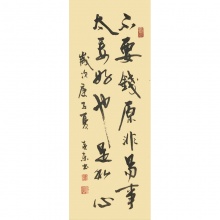 不要錢原非易事
太要好也是私心
歲次庚子夏